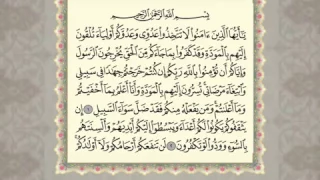 بِسْمِ اللَّهِ الرَّحْمَٰنِ الرَّحِيمِ
يَٰٓأَيُّهَا الَّذِينَ ءَامَنُوا لَا تَتَّخِذُوا عَدُوِّي وَعَدُوَّكُمْ أَوْلِيَآءَ تُلْقُونَ
إِلَيْهِم بِالْمَوَدَّةِ وَقَدْ كَفَرُوا بِمَا جَآءَكُم مِّنَ الْحَقِّ يُخْرِجُونَ الرَّسُولَ
وَإِيَّاكُمْ أَن تُؤْمِنُوا بِاللَّهِ رَبِّكُمْ إِن كُنتُمْ خَرَجْتُمْ جِهَٰدًا فِي سَبِيلِي
وَابْتِغَآءَ مَرْضَاتِي تُسِرُّونَ إِلَيْهِم بِالْمَوَدَّةِ وَأَنَا أَعْلَمُ بِمَآ أَخْفَيْتُمْ
وَمَآ أَعْلَنتُمْ وَمَن يَفْعَلْهُ مِنكُمْ فَقَدْ ضَلَّ سَوَآءَ السَّبِيلِ ١ إِن
يَثْقَفُوكُمْ يَكُونُوا لَكُمْ أَعْدَآءً وَيَبْسُطُوٓا إِلَيْكُمْ أَيْدِيَهُمْ وَأَلْسِنَتَهُم
بِالسُّوٓءِ وَوَدُّوا لَوْ تَكْفُرُونَ ٢ لَن تَنفَعَكُمْ أَرْحَامُكُمْ وَلَآ أَوْلَٰدُكُمْ